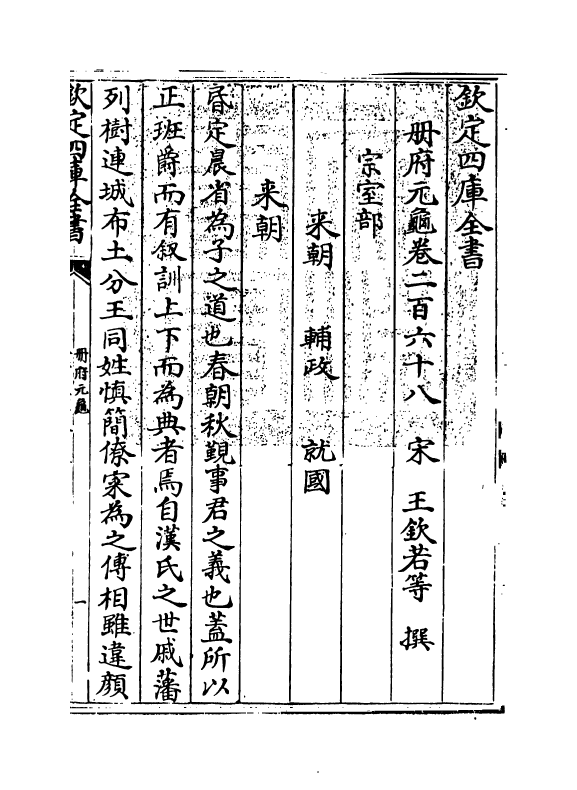 欽定四庫全書
冊府元龜卷二百六十八　宋　王欽若等　撰
宗室部
来朝　輔政　就國
来朝
昏定晨省為子之道也春朝秋覲事君之義也蓋所以
正班爵而有叙訓上下而為典者焉自漢氏之世戚藩
列樹連城布土分王同姓慎簡僚寀為之傅相雖違顔
欽定四庫全書
冊府元龜
一